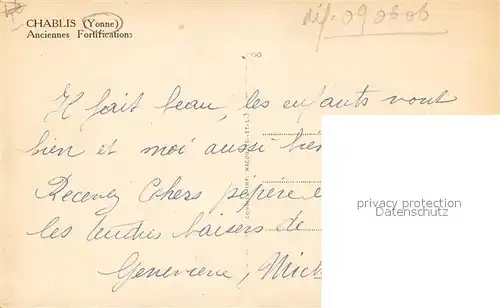 CHABLIS (Yonne)
Anciennes Fortifications
dép. 090606
Il fait beau, les enfants vont
bien et moi aussi
Recevez Cohers pépère
les tendres baisers de
Genevieve,
privacy protection
Datenschutz